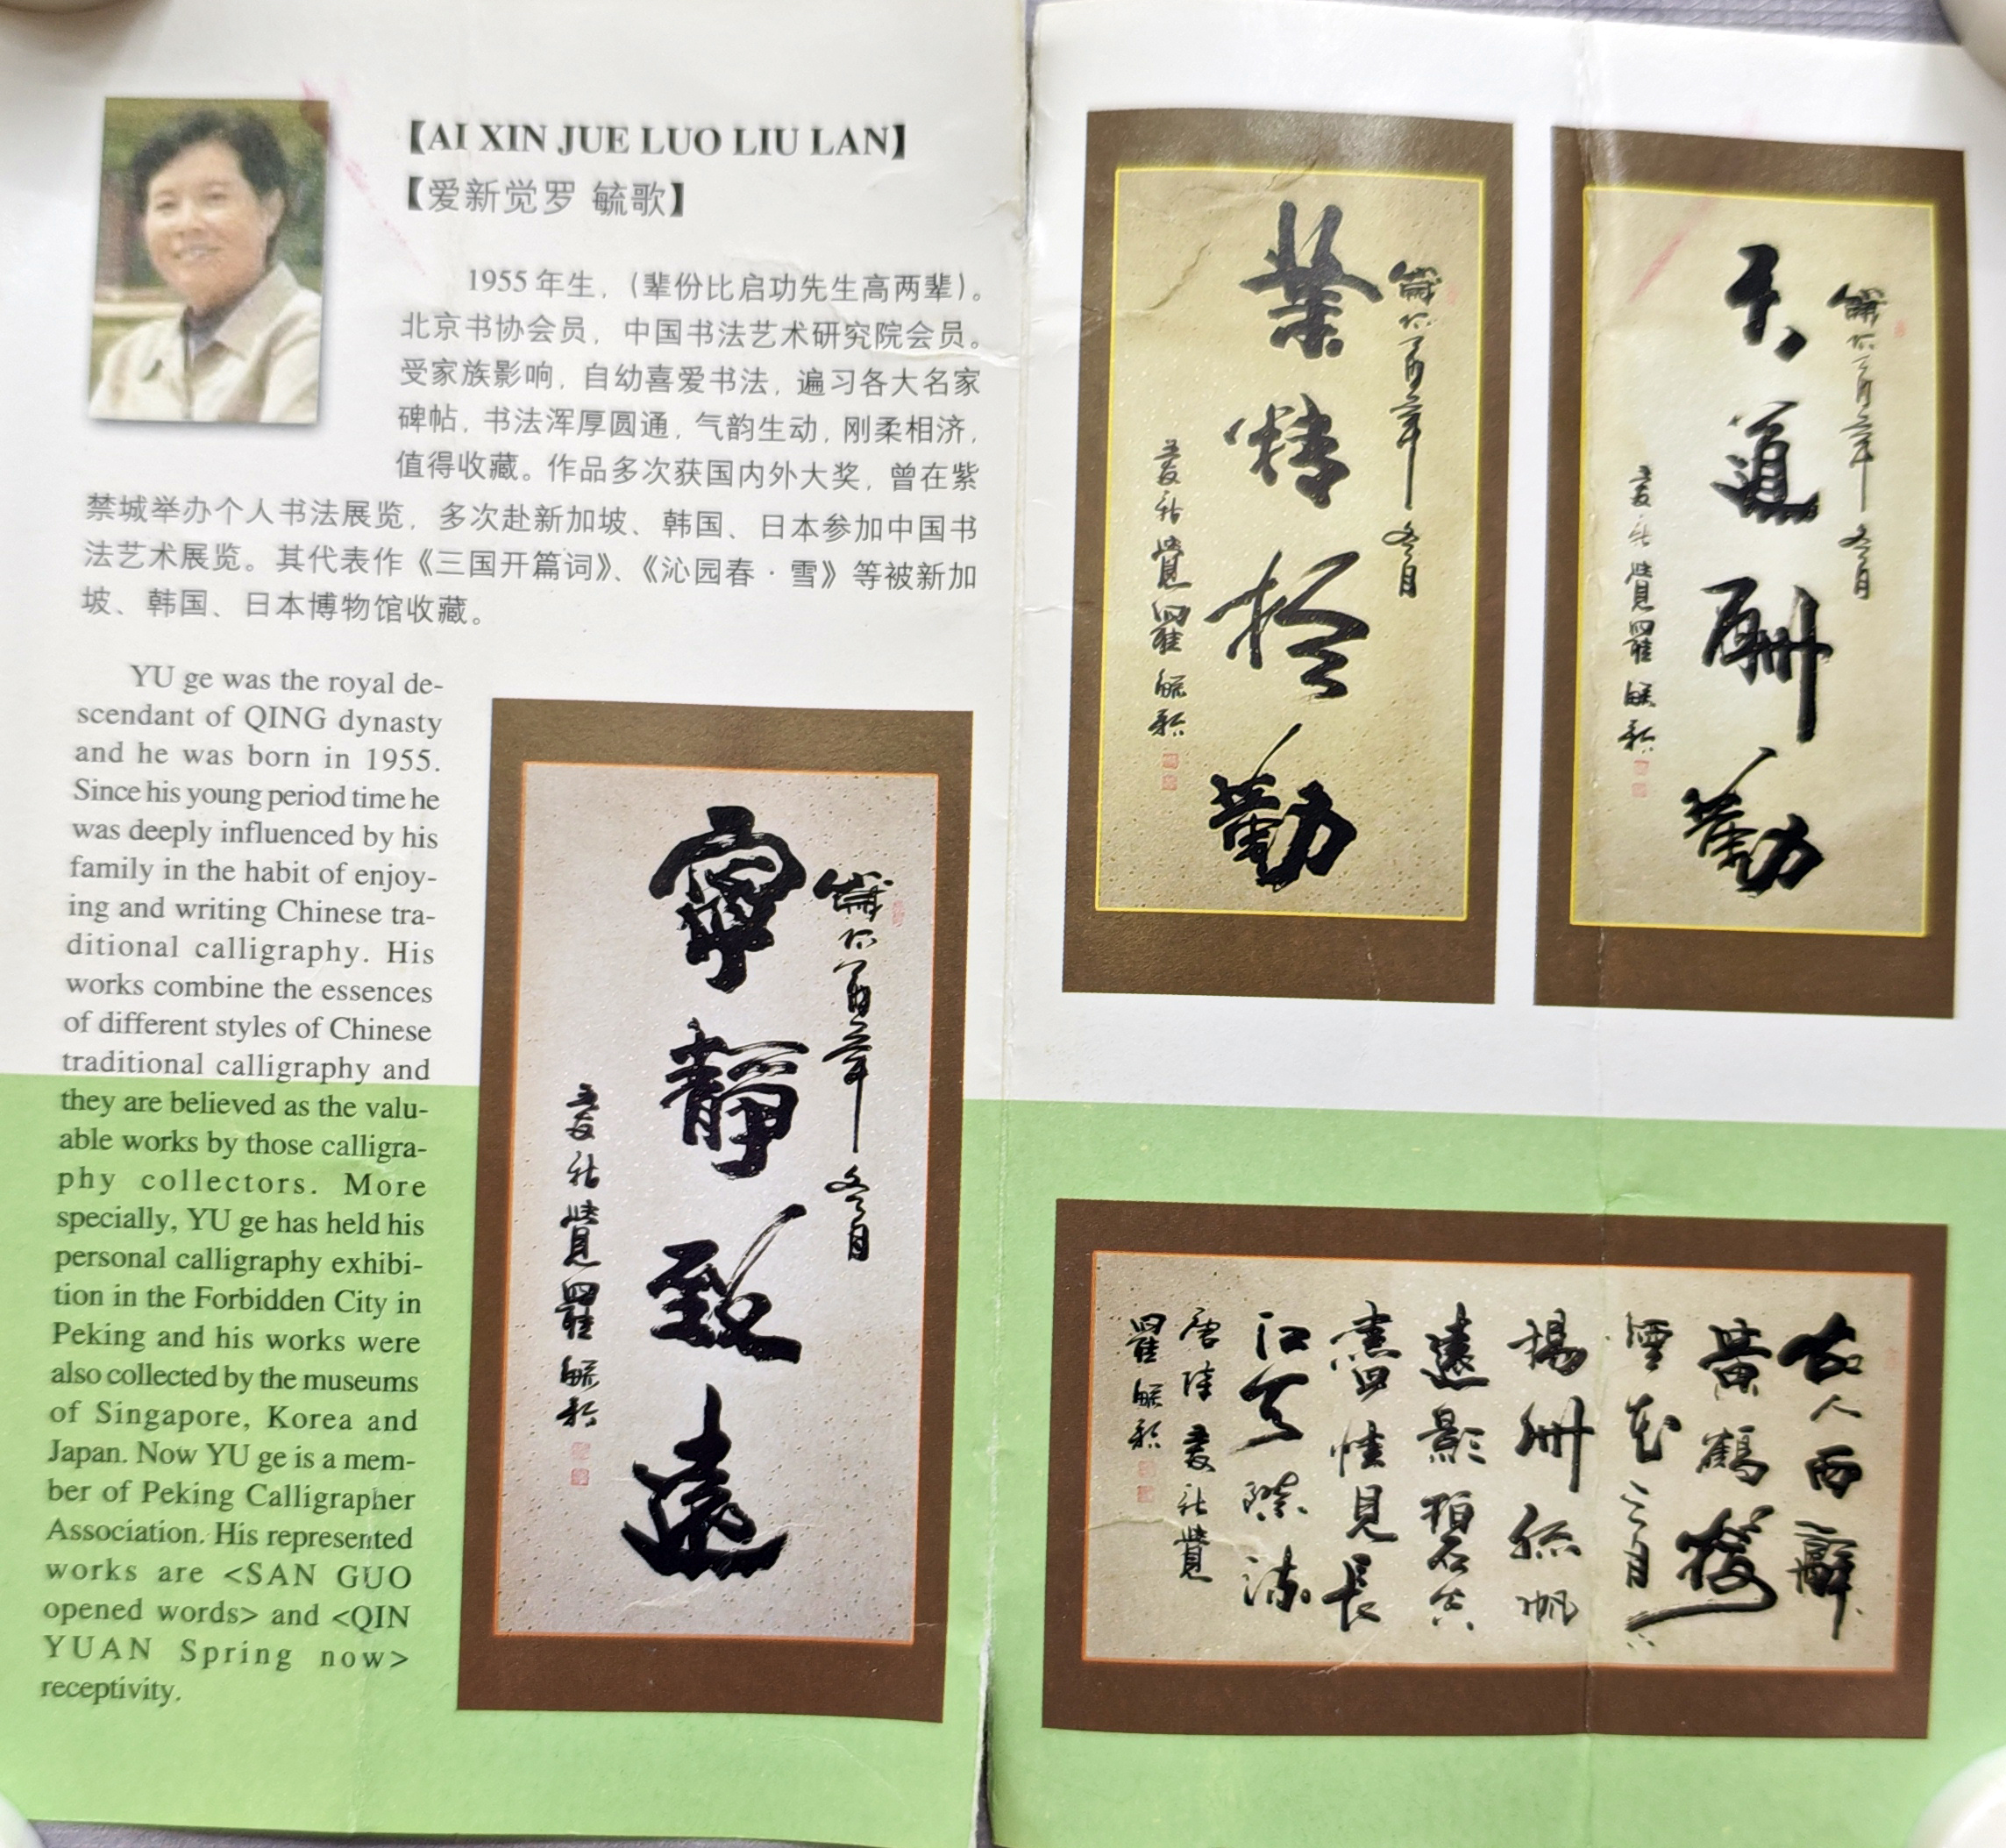 【AI XIN JUE LUO LIU LAN】
【爱新觉罗 毓歌】
1955年生，（辈份比启功先生高两辈）。
北京书协会员，中国书法艺术研究院会员。
受家族影响，自幼喜爱书法，遍习各大名家
碑帖，书法浑厚圆通，气韵生动，刚柔相济，
值得收藏。作品多次获国内外大奖，曾在紫
禁城举办个人书法展览，多次赴新加坡、韩国、日本参加中国书
法艺术展览。其代表作《三国开篇词》、《沁园春·雪》等被新加
坡、韩国、日本博物馆收藏。
YU ge was the royal de-
scendant of QING dynasty
and he was born in 1955.
Since his young period time he
was deeply influenced by his
family in the habit of enjoy-
ing and writing Chinese tra-
ditional calligraphy. His
works combine the essences
of different styles of Chinese
traditional calligraphy and
they are believed as the valu-
able works by those calligra-
phy collectors. More
specially, YU ge has held his
personal calligraphy exhibi-
tion in the Forbidden City in
Peking and his works were
also collected by the museums
of Singapore, Korea and
Japan. Now YU ge is a mem-
ber of Peking Calligrapher
Association. His represented
works are <SAN GUO
opened words> and <QIN
YUAN Spring now>
receptivity.
冬月
寧靜致遠
愛新覺羅毓歌
冬月
業精於勤
愛新覺羅毓歌
冬月
天道酬勤
愛新覺羅毓歌
故人西辭
黃鶴樓
煙花三月
揚州孤帆
遠影碧空
盡惟見長
江天際流
唐詩 愛新覺
羅毓歌